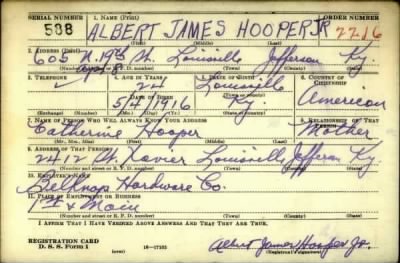 SERIAL NUMBER 1. NAME (Print) ORDER NUMBER
588 ALBERT JAMES HOOPER JR 2216
(First) (Middle) (Last)
2. ADDRESS (Print)
605 N. 19th St. Louisville Jefferson Ky.
(Number and street or R. F. D. number) (Town) (County) (State)
3. TELEPHONE 4. AGE IN YEARS 5. PLACE OF BIRTH 6. COUNTRY OF CITIZENSHIP
24 Louisville
DATE OF BIRTH
5/4/1916 Ky. American
(Exchange) (Number) (Mo.) (Day) (Yr.) (State or country)
7. NAME OF PERSON WHO WILL ALWAYS KNOW YOUR ADDRESS 8. RELATIONSHIP OF THAT PERSON
Catherine Hooper Mother
(Mr., Mrs., Miss) (First) (Middle) (Last)
9. ADDRESS OF THAT PERSON
2412 St. Xavier Louisville Jefferson Ky.
(Number and street or R. F. D. number) (Town) (County) (State)
10. EMPLOYER'S NAME
Belknap Hardware Co.
11. PLACE OF EMPLOYMENT OR BUSINESS
1st & Main
(Number and street or R. F. D. number) (Town) (County) (State)
I AFFIRM THAT I HAVE VERIFIED ABOVE ANSWERS AND THAT THEY ARE TRUE.
REGISTRATION CARD
D. S. S. Form 1 (over) 16—17105 Albert James Hooper Jr.
(Registrant's signature)